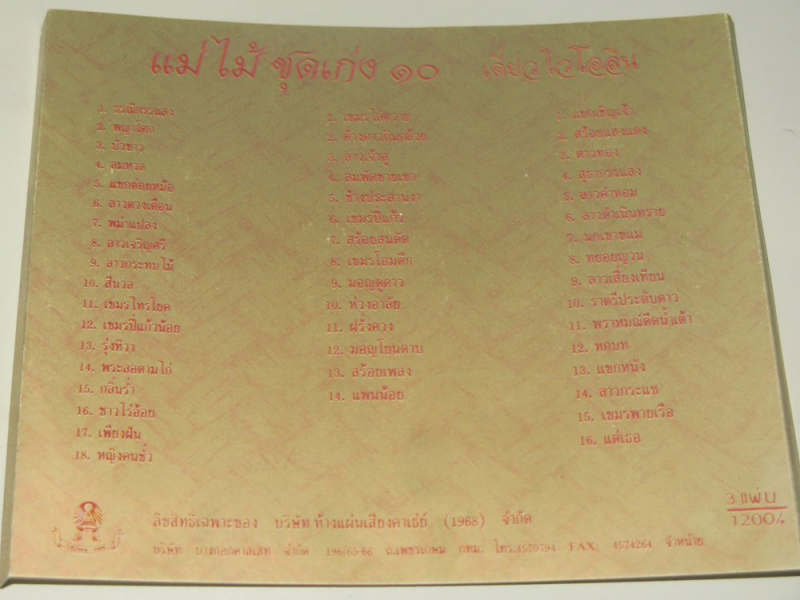 แม่ไม้ ชุดเก่ง ๑๐ เดี่ยวไวโอลิน
1. ธรณีกรรแสง
2. พญาโศก
3. บัวขาว
4. ลมหวล
5. แขกต่อยหม้อ
6. ลาวดวงเดือน
7. พม่าแปลง
8. ลาวเจริญศรี
9. ลาวกระทบไม้
10. สีนวล
11. เขมรไทรโยค
12. เขมรปี่แก้วน้อย
13. รุ่งทิวา
14. พระลอตามไก่
15. กลิ่นร่ำ
16. ชาวไร่อ้อย
17. เพียงฝัน
18. หญิงคนชั่ว
1. เขมรไล่ควาย
2. ค้างคาวกินกล้วย
3. ลาวเจ้าซู
4. ลมพัดชายเขา
5. ช้างประสานงา
6. เขมรปี่แก้ว
7. สร้อยสนตัด
8. เขมรโอมตึก
9. มอญดูดาว
10. ห่วงอาลัย
11. ฝรั่งควง
12. มอญโยนดาบ
13. สร้อยเพลง
14. แพนน้อย
1. แขกเชิญเจ้า
2. สร้อยแสงแดง
3. ดาวทอง
4. สุธากรรแสง
5. ลาวคำหอม
6. ลาวดำเนินทราย
7. นกเขาขแม
8. หยอยญวน
9. ลาวเสี่ยงเทียน
10. ราตรีประดับดาว
11. พราหมณ์ดีดน้ำเต้า
12. หกบท
13. แขกหนัง
14. ลาวกระแซ
15. เขมรพายเรือ
16. แด่เธอ
3 แผ่น
1200/-
ลิขสิทธิ์เฉพาะของ บริษัท ห้างแผ่นเสียงคาเธ่ย์ (1968) จำกัด
บริษัท บางกอกคาสเสท จำกัด 196/65-66 ถ.เพชรเกษม กทม. โทร.4570794 FAX: 4574264 จำหน่าย